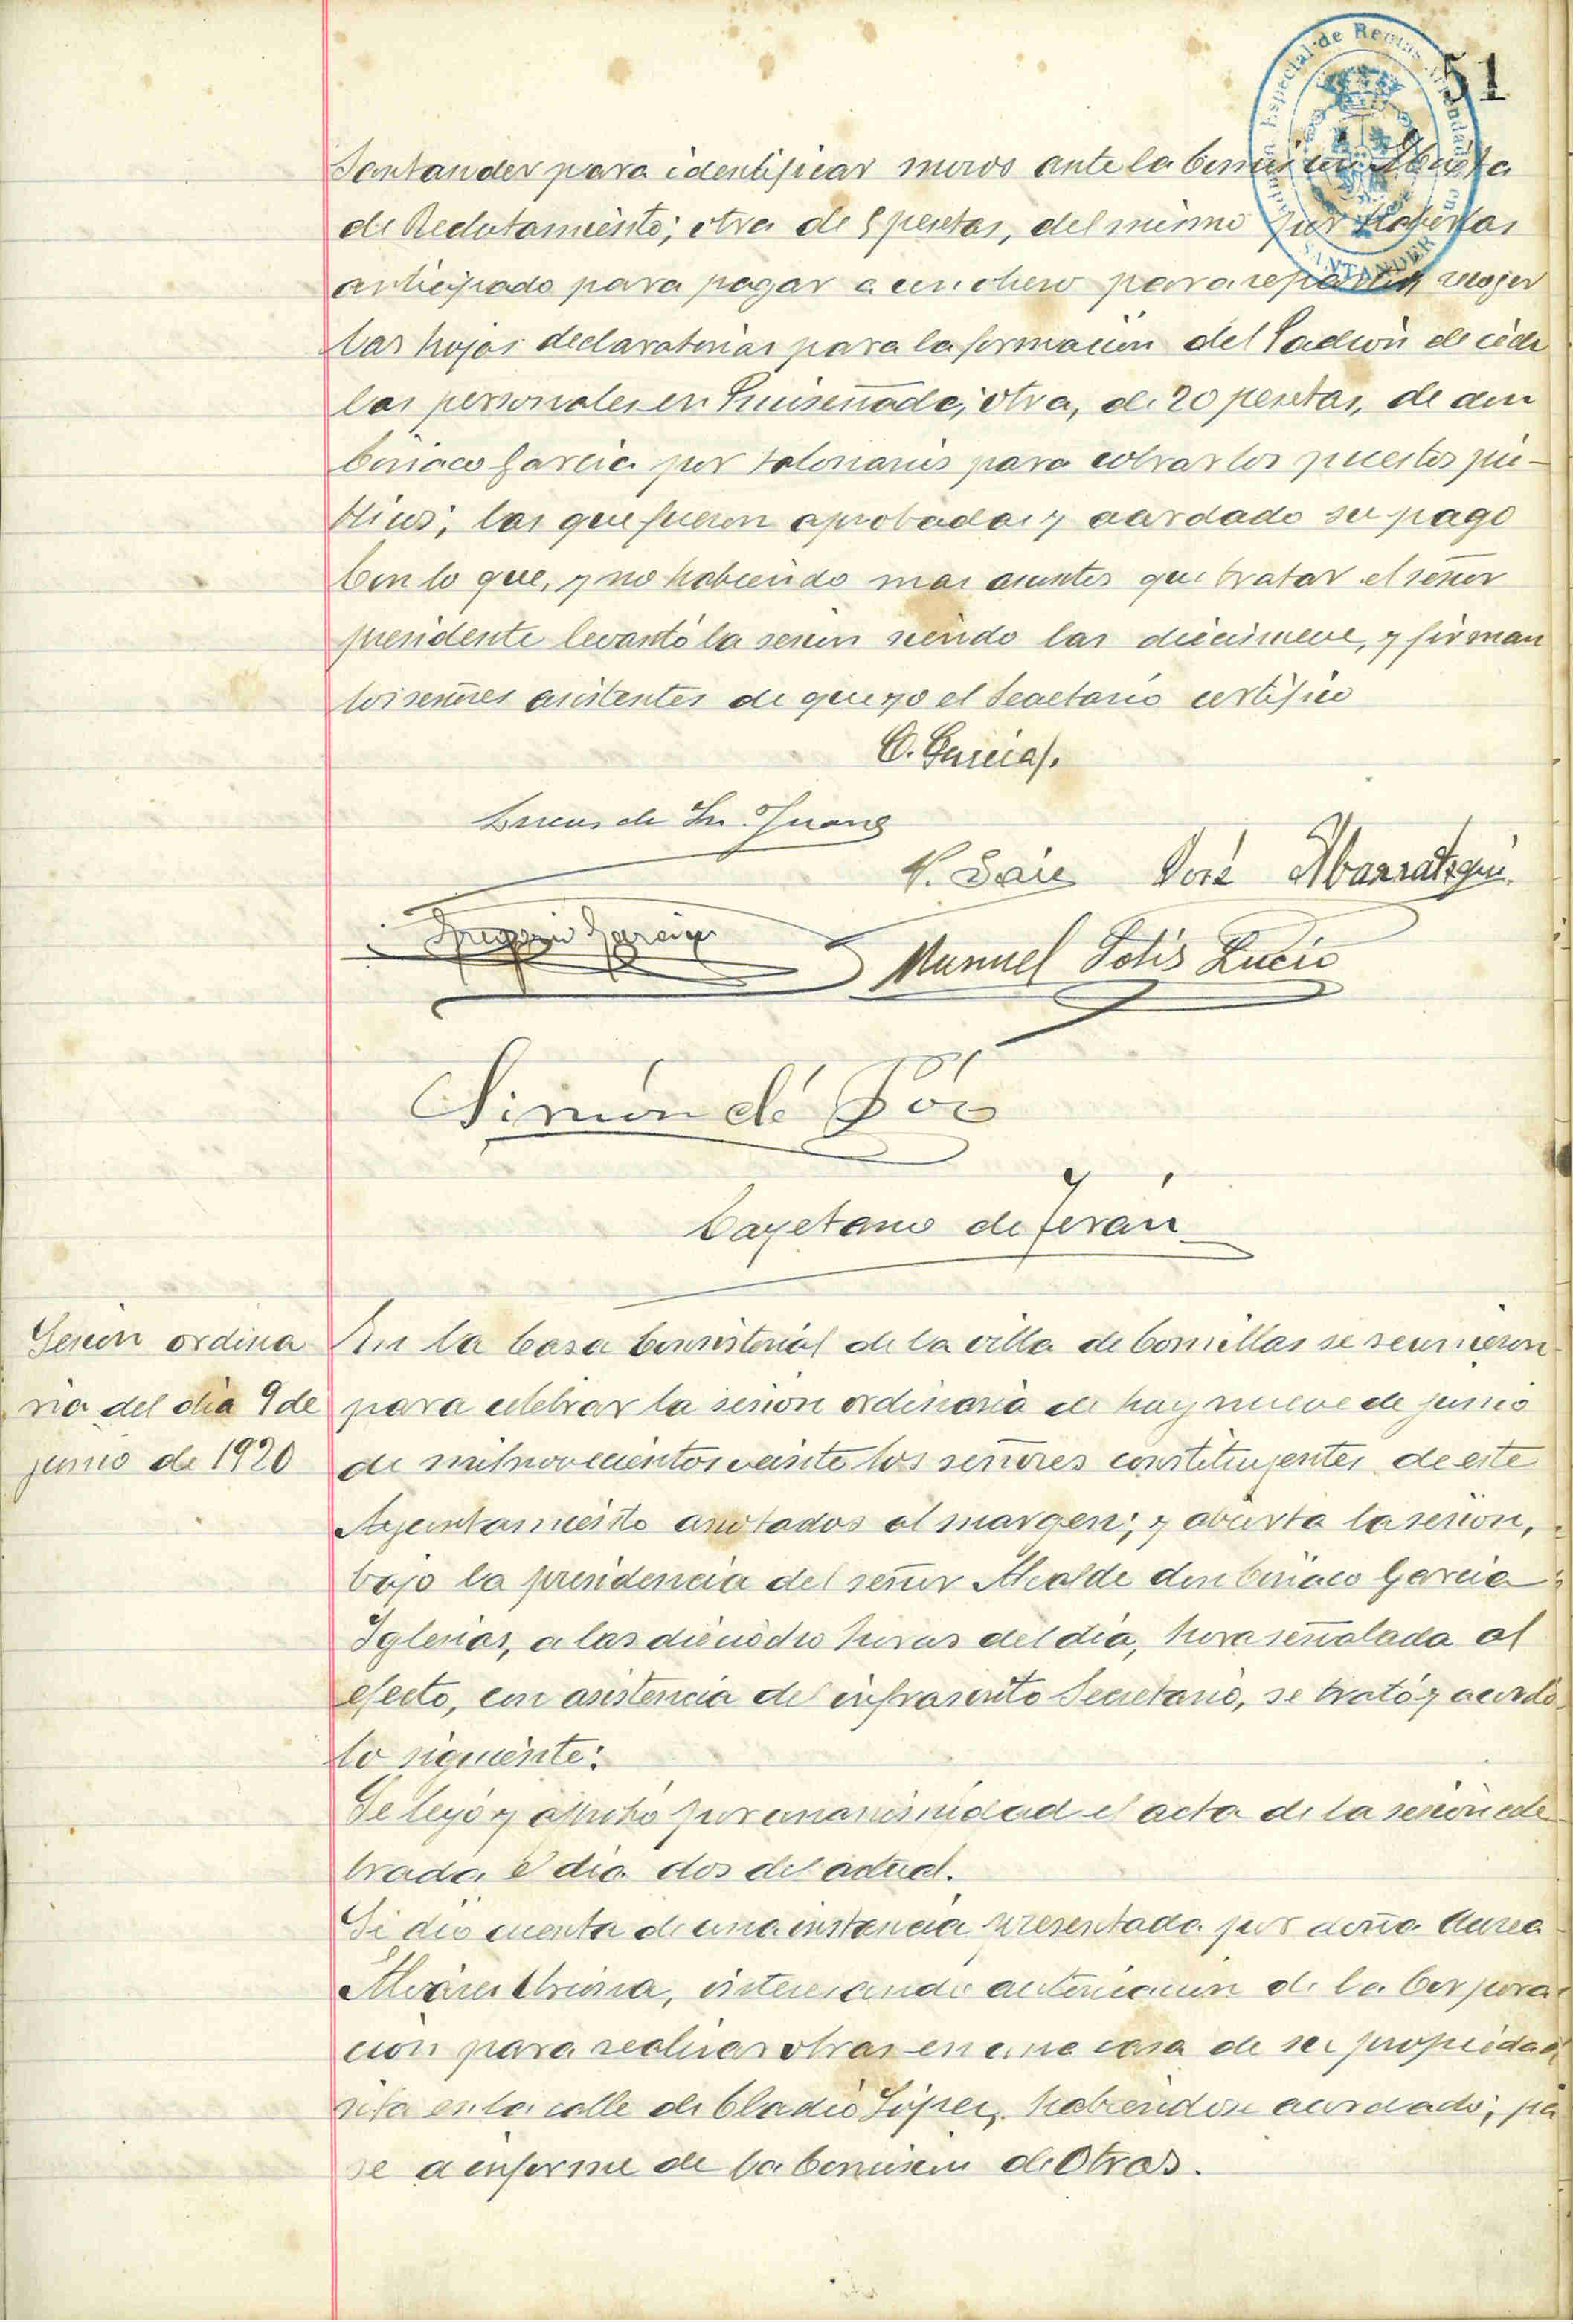 51
Especial de Rentas Arrendadas en
SANTANDER
Santander para identificar mozos ante la Comisión Mixta
de Reclutamiento; otra de 8 pesetas, del mismo por haberlas
anticipado para pagar a un obrero para repartir y recojer
las hojas declaratorias para la formación del Padrón de cédu
las personales en Ruiseñada; otra, de 20 pesetas, de don
Ciriaco García por talonarios para cobrar los puestos pú-
blicos; las que fueron aprobadas y acordado su pago
Con lo que, y no habiendo mas asuntos que tratar el señor
presidente levantó la sesión siendo las diecinueve, y firman
los señores asistentes de que yo el Secretario certifico
C. García
Lucas de Sn. Juan
José Abarrategui
Gregorio García
Manuel Solis Lucio
Simón de Pós
Cayetano de Terán
Sesión ordina
ria del dia 9 de
junio de 1920
En la Casa Consistorial de la villa de Comillas se reunieron
para celebrar la sesión ordinaria de hoy nueve de junio
de mil novecientos veinte los señores constituyentes de este
Ayuntamiento anotados al margen; y abierta la sesión,
bajo la presidencia del señor Alcalde don Ciriaco García
Iglesias, a las dieciocho horas del día, hora señalada al
efecto, con asistencia del infrascrito Secretario, se trató y acordó
lo siguiente:
Se leyó y aprobó por unanimidad el acta de la sesión cele
brada el dia dos del actual.
Se dió cuenta de una instancia presentada por doña Aurea
Alvárez, interesando autorización de la Corpora
ción para realizar obras en una casa de su propiedad
sita en la calle de Cladio López, habiéndose acordado; pa
se a informe de la Comisión de Obras.